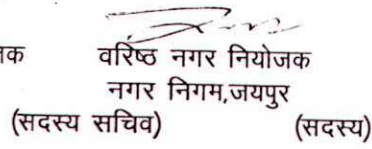 जक वरिष्ठ नगर नियोजक
नगर निगम,जयपुर
(सदस्य सचिव) (सदस्य)